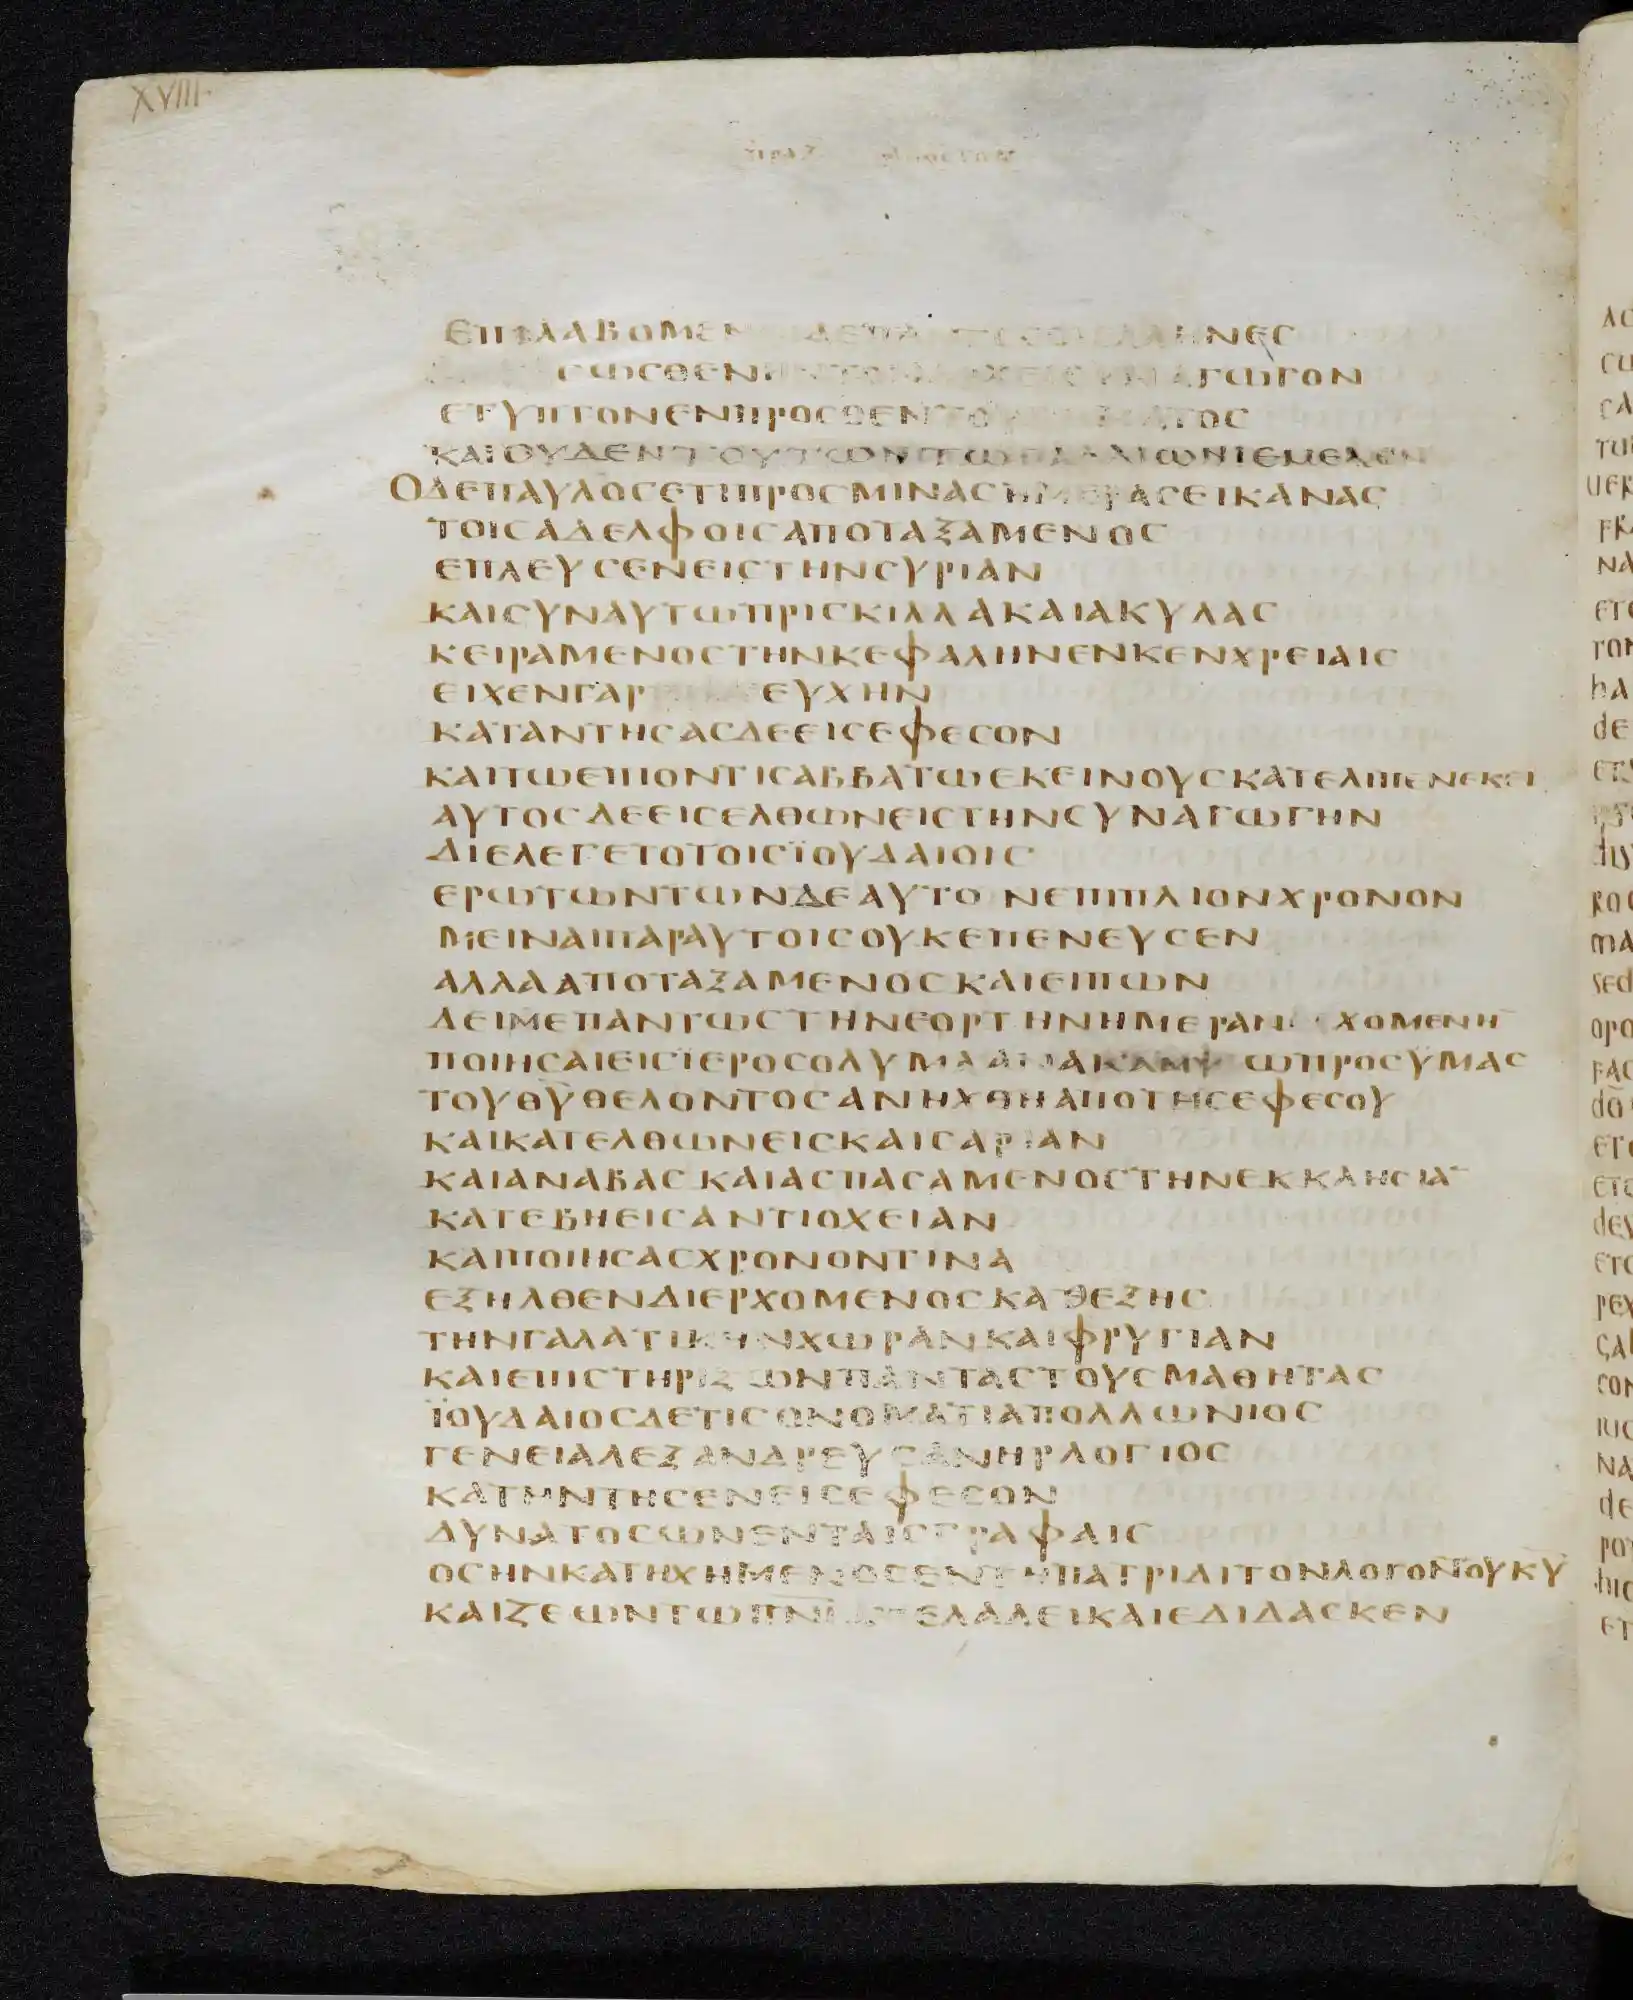 XVIII
ΕΠΙΛΑΒΟΜΕΝ ΔΕΠΑΝΤΕСΟΙΕΛΛΗΝΕС
СΩСΘΕΝΗΝΤΟΝΑΡΧΕΙСΥΝΑΓΩΓΟΝ
ΕΤΥΠΤΟΝΕΝΠΡΟСΘΕΝΤΟΥ ΒΗΜΑΤΟС
ΚΑΙΟΥΔΕΝΤΟΥΤΩΝΤΩΓΑΛΛΙΩΝΙΕΜΕΛΕΝ
ΟΔΕΠΑΥΛΟСΕΤΙΠΡΟСΜΙΝΑСΗΜΕΡΑСΕΙΚΑΝΑС
ΤΟΙСΑΔΕΛΦΟΙСΑΠΟΤΑΞΑΜΕΝΟС
ΕΠΛΕΥСΕΝΕΙСΤΗΝСΥΡΙΑΝ
ΚΑΙСΥΝΑΥΤΩΠΡΙСΚΙΛΛΑΚΑΙΑΚΥΛΑС
ΚΕΙΡΑΜΕΝΟСΤΗΝΚΕΦΑΛΗΝΕΝΚΕΝΧΡΕΙΑΙС
ΕΙΧΕΝΓΑΡ ΕΥΧΗΝ
ΚΑΤΑΝΤΗСΑСΔΕΕΙСΕΦΕСΟΝ
ΚΑΙΤΩΕΠΙΟΝΤΙСΑΒΒΑΤΩΕΚΕΙΝΟΥСΚΑΤΕΛΙΠΕΝΕΚΕΙ
ΑΥΤΟСΔΕΕΙСΕΛΘΩΝΕΙСΤΗΝСΥΝΑΓΩΓΗΝ
ΔΙΕΛΕΓΕΤΟΤΟΙСΪΟΥΔΑΙΟΙС
ΕΡΩΤΩΝΤΩΝΔΕΑΥΤΟ ΝΕΠΙΠΛΙΟΝΧΡΟΝΟΝ
ΜΕΙΝΑΙΠΑΡΑΥΤΟΙСΟΥΚΕΠΕΝΕΥСΕΝ
ΑΛΛΑΑΠΟΤΑΞΑΜΕΝΟСΚΑΙΕΙΠΩΝ
ΔΕΙΜΕΠΑΝΤΩСΤΗΝΕΟΡΤΗΝΗΜΕΡΑΝ ΧΟΜΕΝΗ̅
ΠΟΙΗСΑΙΕΙСΪΕΡΟСΟΛΥΜΑ ΑΝΑΚΑΜΨΩΠΡΟСΫΜΑС
ΤΟΥΘ̅Υ̅ΘΕΛΟΝΤΟСΑΝΗΧΘΗΑΠΟΤΗСΕΦΕСΟΥ
ΚΑΙΚΑΤΕΛΘΩΝΕΙСΚΑΙСΑΡΙΑΝ
ΚΑΙΑΝΑΒΑСΚΑΙΑСΠΑСΑΜΕΝΟСΤΗΝΕΚΚΛΗСΙΑ̅
ΚΑΤΕΒΗΕΙСΑΝΤΙΟΧΕΙΑΝ
ΚΑΙΠΟΙΗСΑСΧΡΟΝΟΝΤΙΝΑ
ΕΞΗΛΘΕΝΔΙΕΡΧΟΜΕΝΟСΚΑΘΕΞΗС
ΤΗΝΓΑΛΑΤΙΚΗΝΧΩΡΑΝΚΑΙΦΡΥΓΙΑΝ
ΚΑΙΕΠΙСΤΗΡΙΖΩΝΠΑΝΤΑСΤΟΥСΜΑΘΗΤΑС
ΪΟΥΔΑΙΟСΔΕΤΙСΟΝΟΜΑΤΙΑΠΟΛΛΩΝΙΟС
ΓΕΝΕΙΑΛΕΞΑΝΔΡΕΥСΑΝΗΡΛΟΓΙΟС
ΚΑΤΗΝΤΗСΕΝΕΙСΕΦΕСΟΝ
ΔΥΝΑΤΟСΩΝΕΝΤΑΙСΓΡΑΦΑΙС
ΟСΗΝΚΑΤΗΧΗΜΕΝΟСΕΝΤΗΠΑΤΡΙΔΙΤΟΝΛΟΓΟΝΤΟΥΚ̅Υ̅
ΚΑΙΖΕΩΝΤΩΠ̅Ν̅Ι̅ ΕΛΑΛΕΙΚΑΙΕΔΙΔΑСΚΕΝ